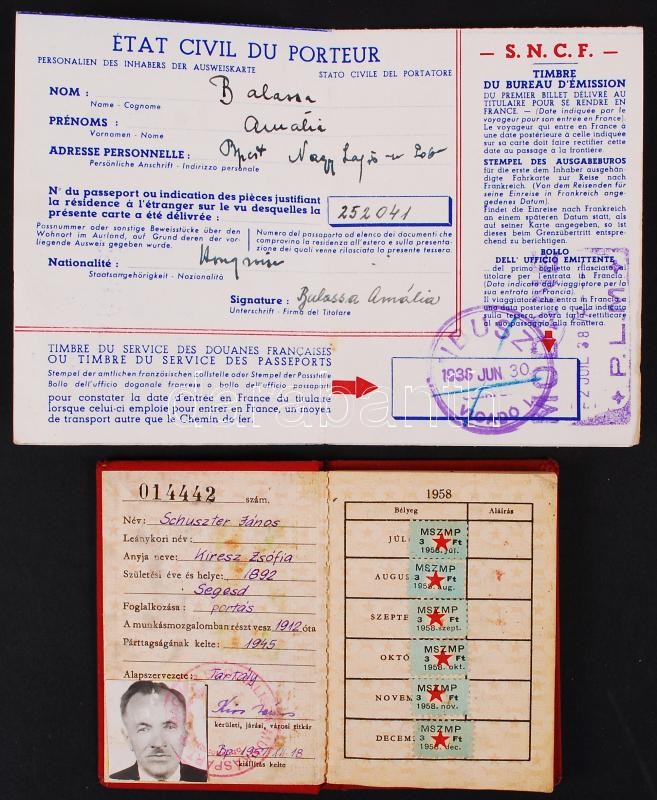 ÉTAT CIVIL DU PORTEUR
PERSONALIEN DES INHABERS DER AUSWEISKARTE
STATO CIVILE DEL PORTATORE
NOM : Balassa
Name - Cognome
PRÉNOMS : Amália
Vornamen - Nome
ADRESSE PERSONNELLE : Bpest Nagy Lajos u
Persönliche Anschrift - Indirizzo personale
N° du passeport ou indication des pièces justifiant
la résidence à l'étranger sur le vu desquelles la
présente carte a été délivrée :
252041
Passnummer oder sonstige Beweisstücke über den
Wohnort im Ausland, auf Grund deren der vor-
liegende Ausweis gegeben wurde.
Numero del passaporto od elenco dei documenti che
comprovino la residenza all'estero e sulla presenta-
zione dei quali venne rilasciata la presente tessera.
Nationalité : Hongroise
Staatsangehörigkeit - Nazionalità
Signature : Balassa Amália
Unterschrift - Firma del Titolare
— S. N. C. F. —
TIMBRE
DU BUREAU D'ÉMISSION
DU PREMIER BILLET DÉLIVRÉ AU
TITULAIRE POUR SE RENDRE EN
FRANCE. — (Date indiquée par le
voyageur pour son entrée en France).
Le voyageur qui entre en France à
une date postérieure à celle indiquée
sur sa carte doit faire rectifier cette
date au passage à la frontière.
STEMPEL DES AUSGABEBUROS
für die erste dem Inhaber ausgehän-
digte Fahrkarte zur Reise nach
Frankreich. (Von dem Reisenden für
seine Einreise in Frankreich ange-
gedenes Datum).
Findet die Einreise nach Frankreich
an einem späteren Datum statt, als
auf seiner Karte angegeben, so ist
dies beim Grenzübertritt entspre-
chend zu berichtigen.
BOLLO
DELL' UFFICIO EMITTENTE
del primo biglietto rilasciato
al titolare per l'entrata in Francia
(Data indicata dal viaggiatore per la
sua entrata in Francia).
Il viaggiatore che entra in Francia
TIMBRE DU SERVICE DES DOUANES FRANÇAISES
OU TIMBRE DU SERVICE DES PASSEPORTS
Stempel der amtlichen französischen Zollstelle oder Stempel der Passstelle
Bollo dell'ufficio doganale francese o bollo dell'ufficio passaporti
pour constater la date d'entrée en France du titulaire
lorsque celui-ci emploie pour entrer en France, un moyen
de transport autre que le Chemin de fer.
1938 JUN 30
P.L.M.
darabanth
014442 szám.
Név: Schuszter János
Leánykori név:
Anyja neve: Kiresz Zsófia
Születési éve és helye: 1892
Segesd
Foglalkozása: portás
A munkásmozgalomban részt vesz 1912 óta
Párttagságának kelte: 1945
Alapszervezete: Tartály
kerületi, járási, városi titkár
Bp. 1957
kiállítás kelte
1958
Bélyeg Aláírás
JÚLI MSZMP
3 Ft
1958. júl.
AUGUS MSZMP
3 Ft
1958. aug.
SZEPTE MSZMP
3 Ft
1958. szept.
OKTÓ MSZMP
3 Ft
1958. okt.
NOVEM MSZMP
3 Ft
1958. nov.
DECEM MSZMP
3 Ft
1958. dec.